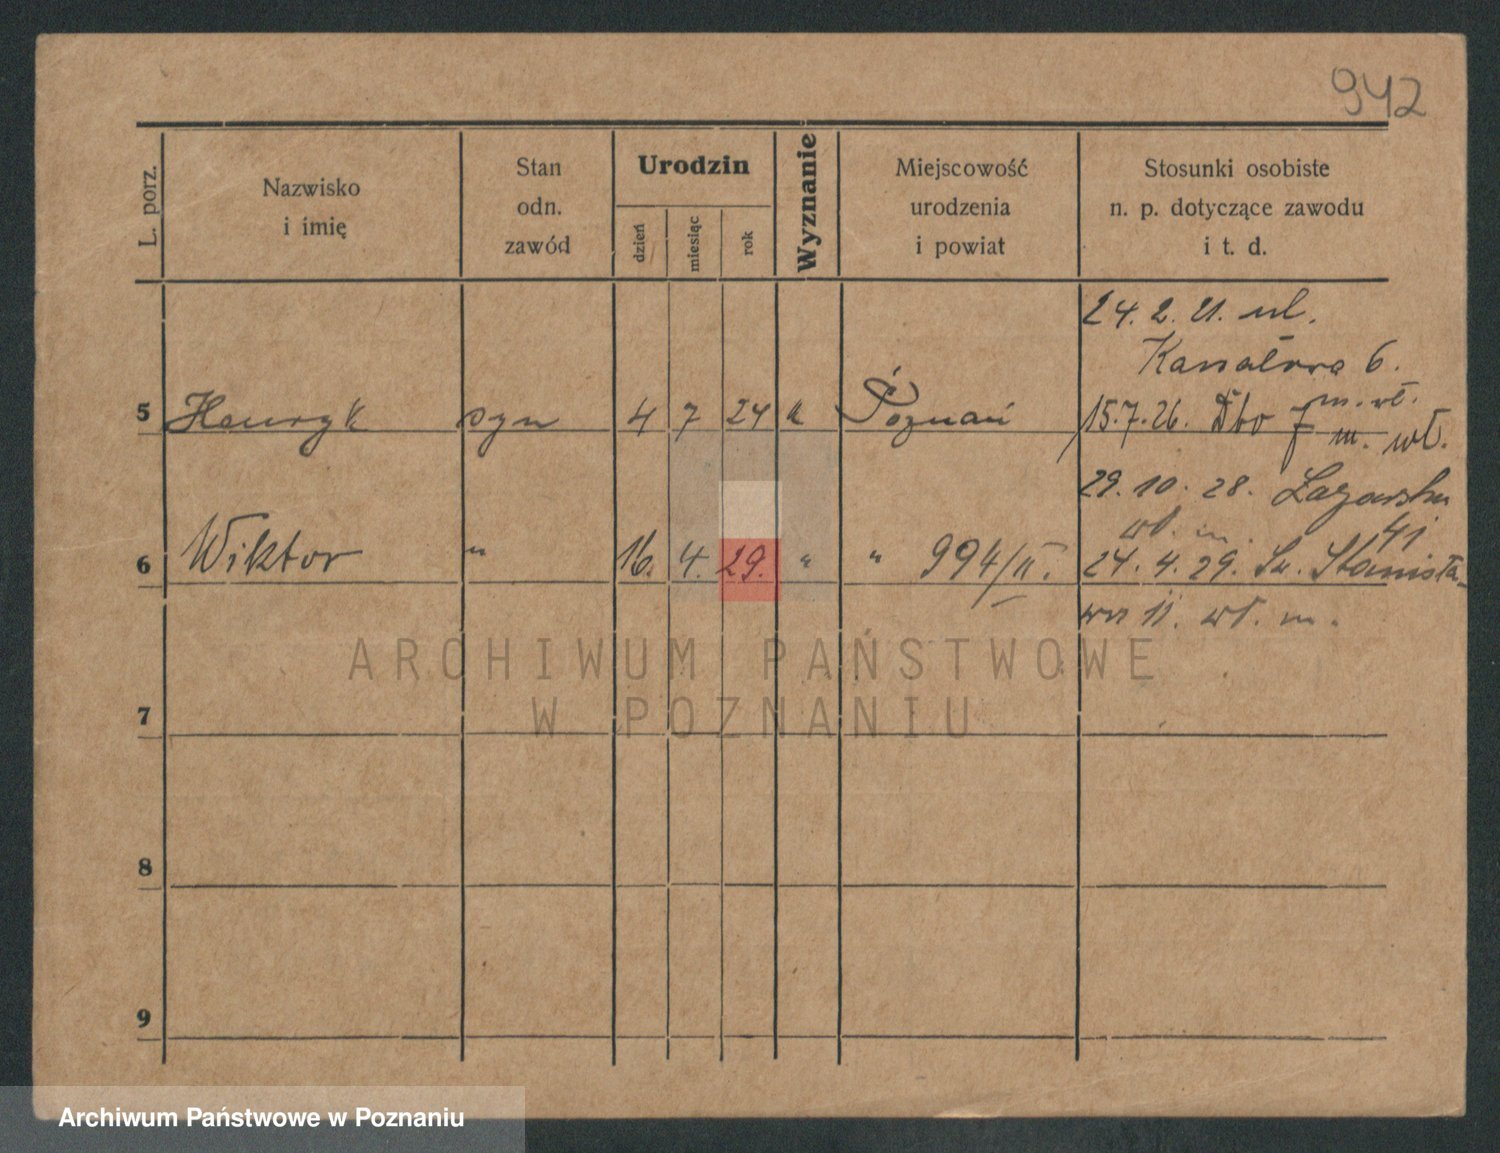 942
L. porz.
Nazwisko
i imię
Stan
odn.
zawód
Urodzin
dzień
miesiąc
rok
Wyznanie
Miejscowość
urodzenia
i powiat
Stosunki osobiste
n. p. dotyczące zawodu
i t. d.
24. 2. 21. ul.
Kanałowa 6.
m. wł.
5 Henryk syn 4 7 24 k Poznań 15.7.26. Dto 7 m. wł.
29. 10. 28. Łazarska
wł. m. 41
6 Wiktor " 16. 4. 29. " " 994/II. 24. 4. 29. Św. Stanisła-
wa 11. wł. m.
ARCHIWUM PAŃSTWOWE
W POZNANIU
7
8
9
Archiwum Państwowe w Poznaniu